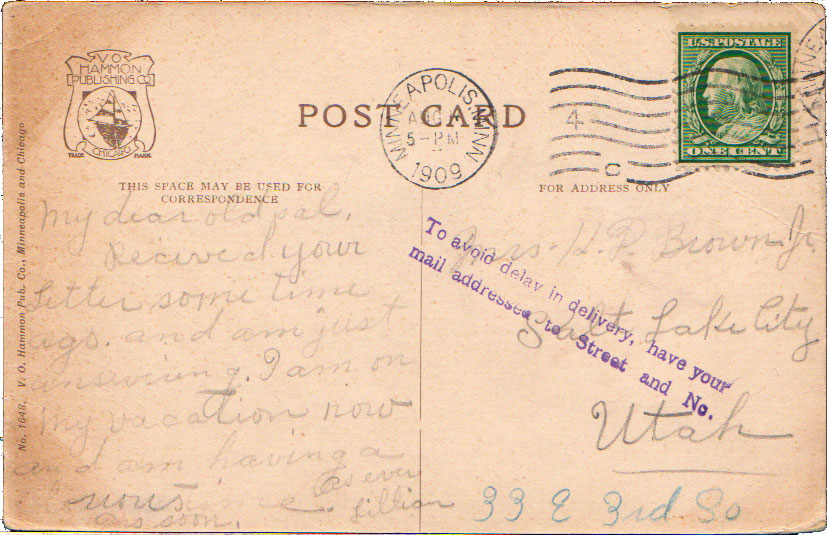 V O
HAMMON
PUBLISHING CO
TRADE CHICAGO MARK
POST CARD
MINNEAPOLIS, MINN.
AUG 4
5-PM
1909
4
C
U.S. POSTAGE
ONE CENT
THIS SPACE MAY BE USED FOR
CORRESPONDENCE
FOR ADDRESS ONLY
No. 1648. V. O. Hammon Pub. Co., Minneapolis and Chicago
My dear old pal.
Received your
letter some time
ago. and am just
answering. I am on
my vacation now
and am having a
time. As ever
soon. Lillian
To avoid delay in delivery, have your
mail addressed to Street and No.
Mrs. H. P. Brown Jr.
Salt Lake City
Utah
33 E 3rd So